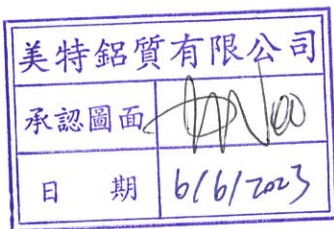 美特鋁質有限公司
承認圖面
日 期 6/6/2023